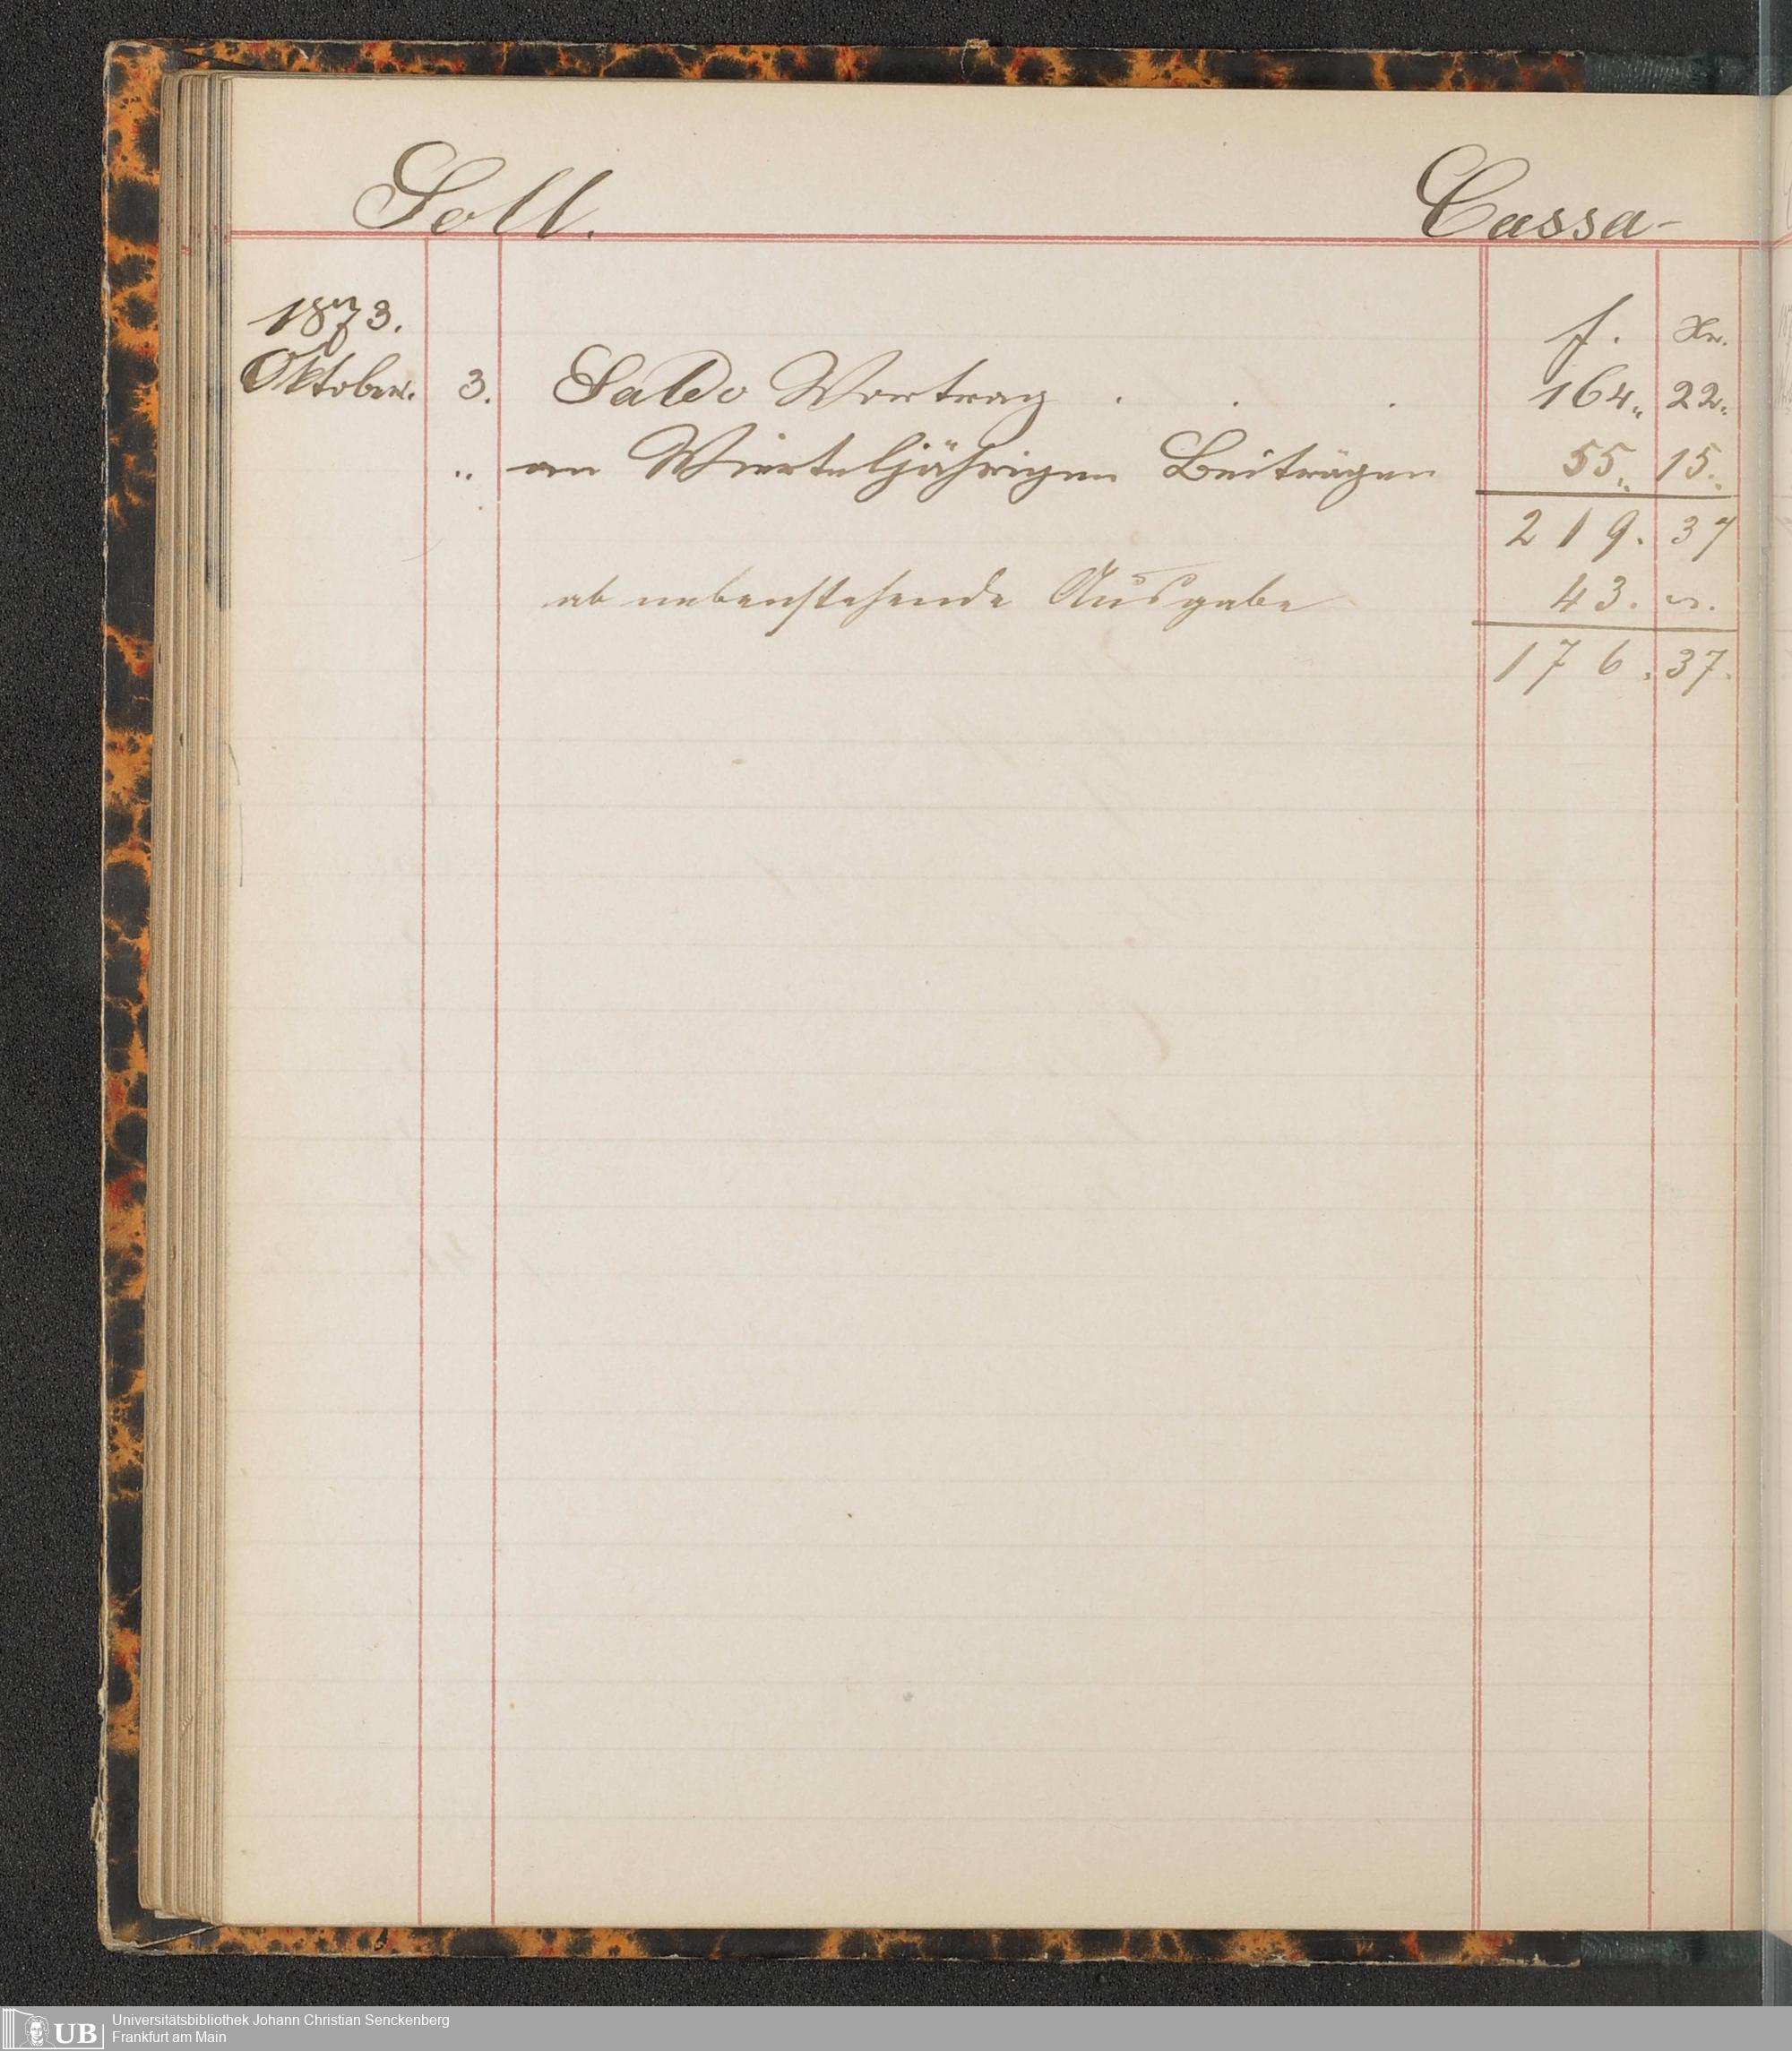 Soll. Cassa-
1873. f. Xr.
Oktober. 3. Saldo Vortrag . . . 164„ 22„
„ an Vierteljährigen Beiträgen 55„ 15„
219. 37
ab nebenstehende Ausgabe 43. „.
176. 37.
UB Universitätsbibliothek Johann Christian Senckenberg
Frankfurt am Main